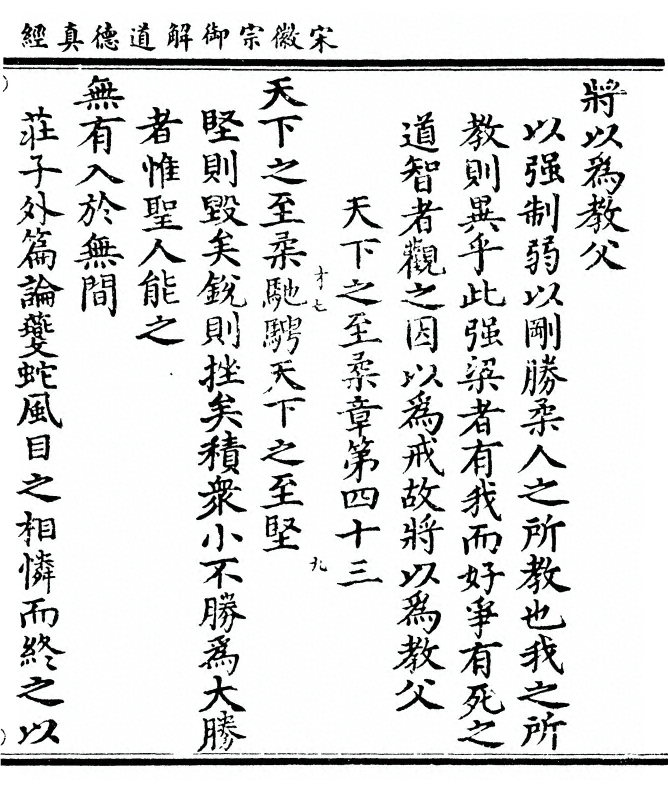 宋徽宗御解道德真經
將以爲教父
以强制弱以剛勝柔人之所教也我之所
教則異乎此强梁者有我而好爭有死之
道智者觀之因以爲戒故將以爲教父
天下之至柔章第四十三
天下之至柔馳騁天下之至堅
才七
九
堅則毀矣銳則挫矣積衆小不勝爲大勝
者惟聖人能之
無有入於無間
莊子外篇論夔蛇風目之相憐而終之以